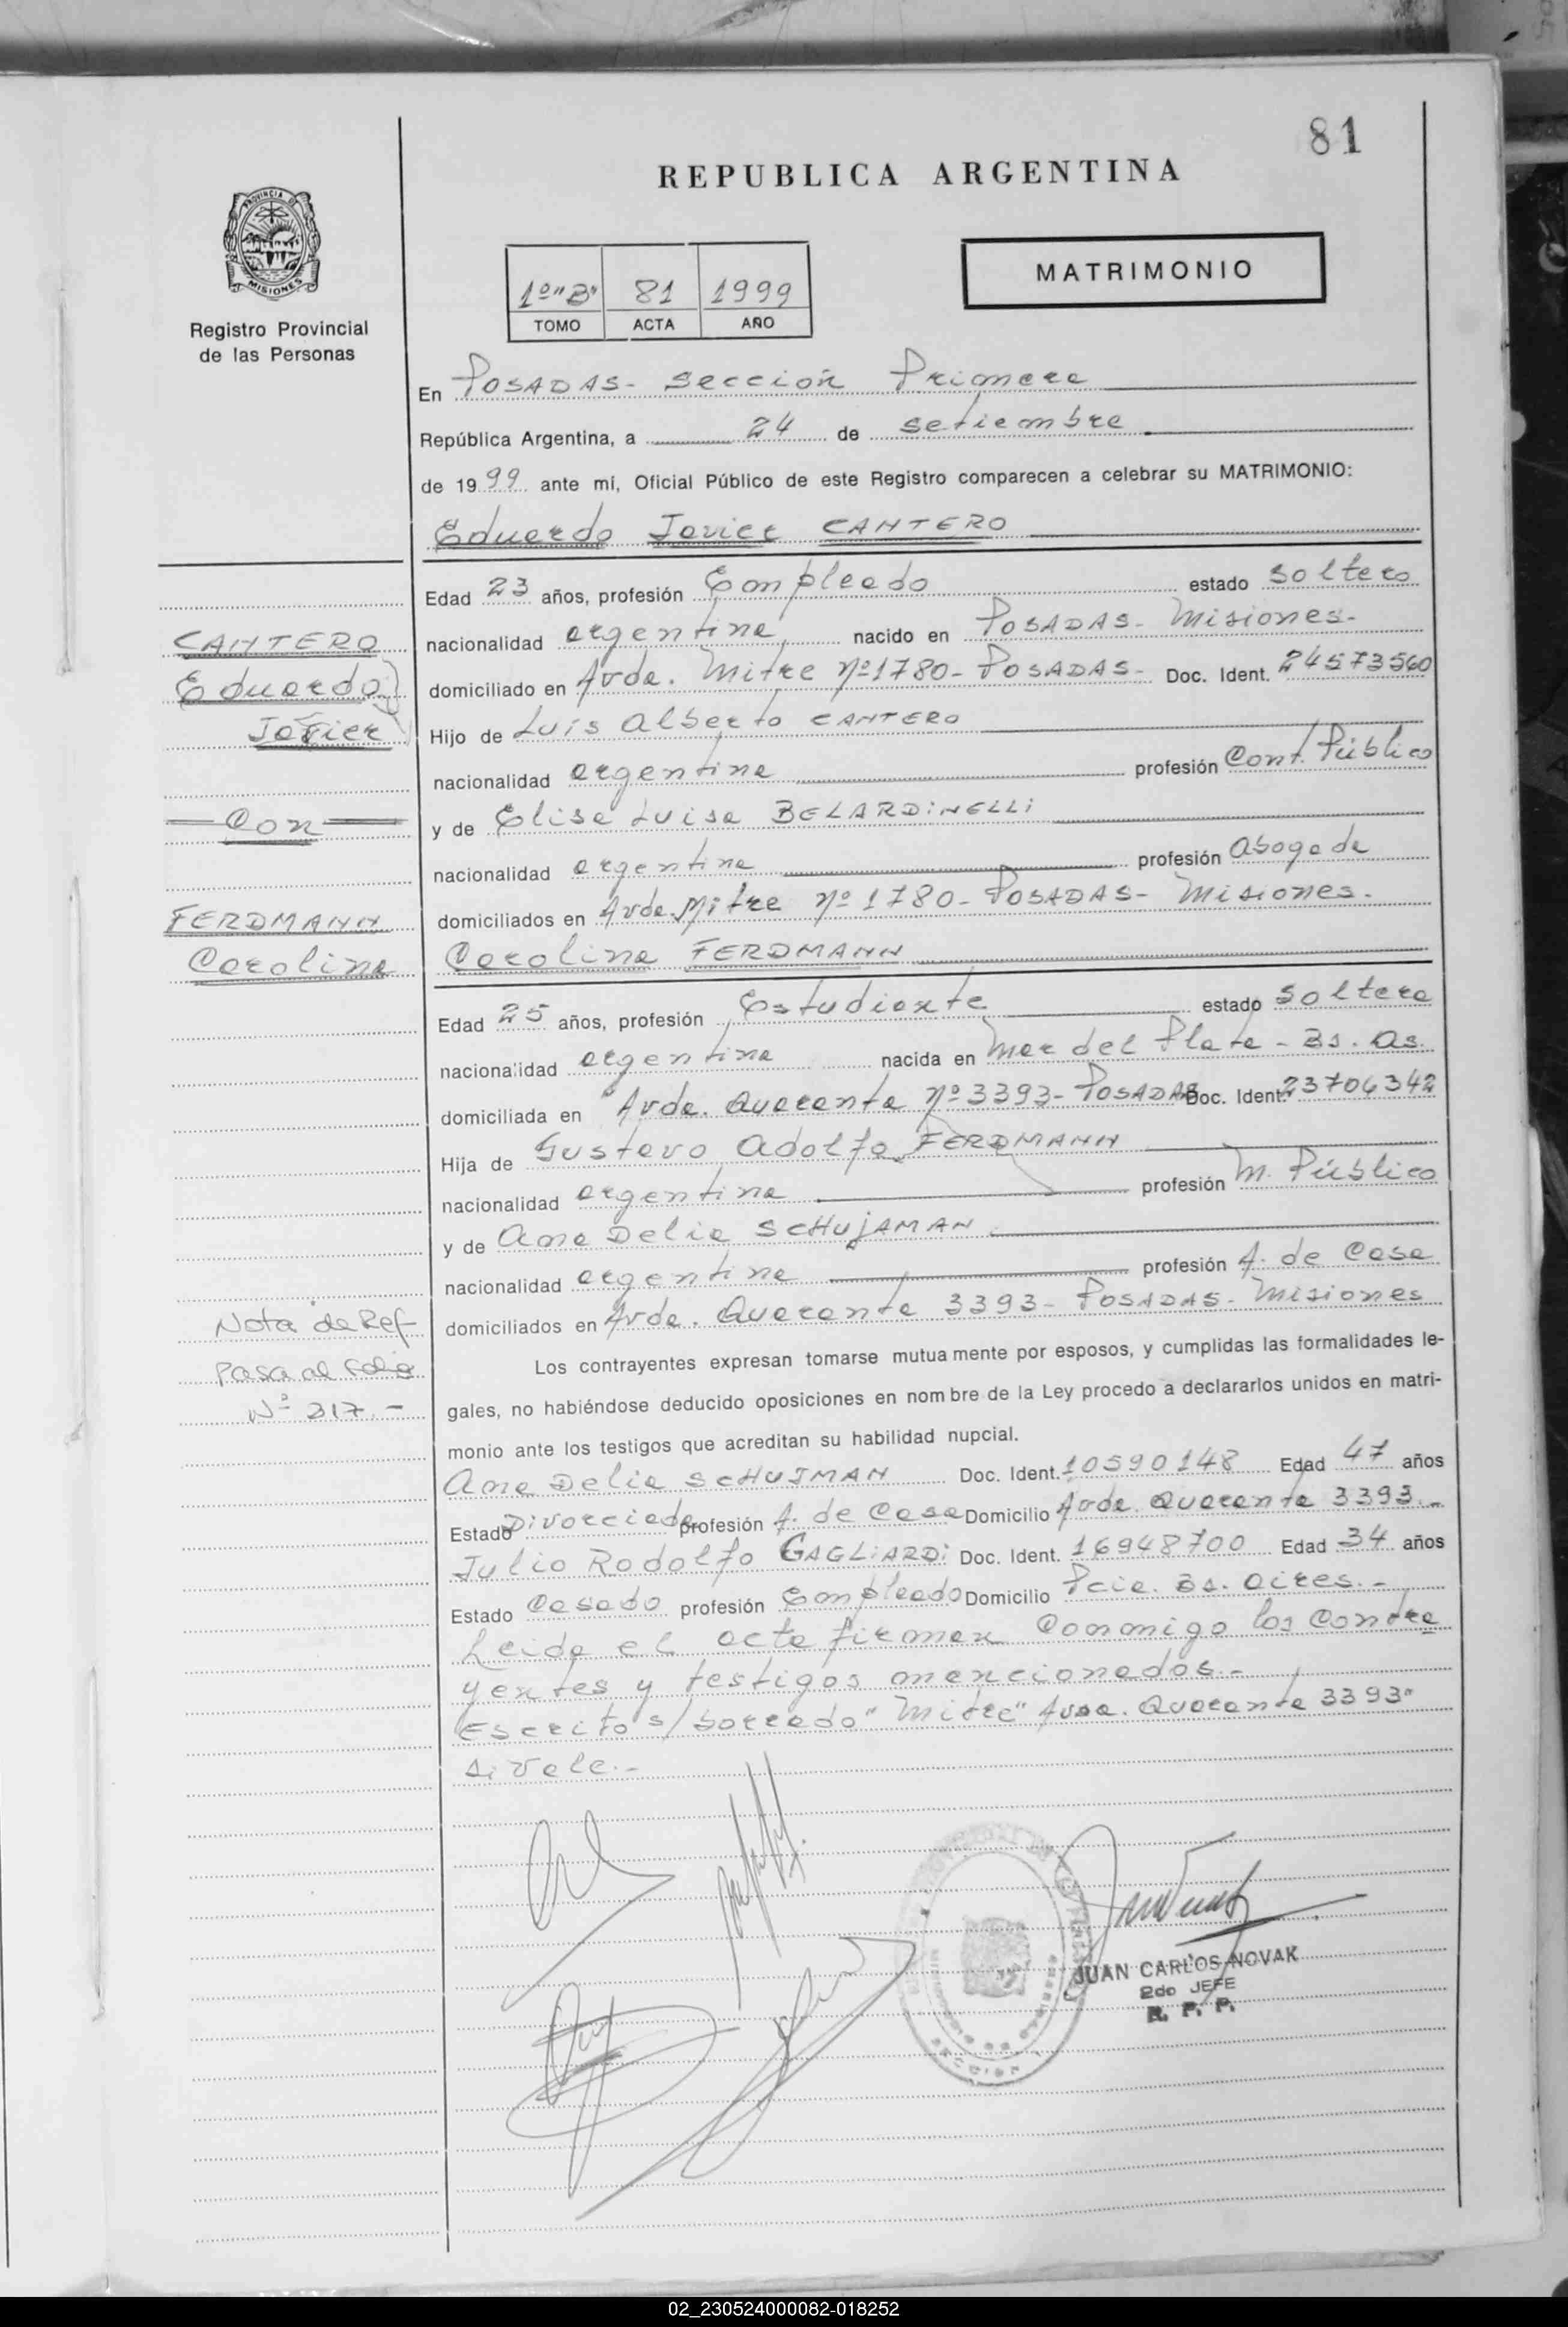 81
REPUBLICA ARGENTINA
PROVINCIA DE
MISIONES
Registro Provincial
de las Personas
1º "B" 81 1999
TOMO ACTA AÑO
MATRIMONIO
En POSADAS- Sección Primera
República Argentina, a 24 de setiembre
de 1999 ante mí, Oficial Público de este Registro comparecen a celebrar su MATRIMONIO:
Eduardo Javier CANTERO
Edad 23 años, profesión Empleado estado soltero
CANTERO
nacionalidad argentina nacido en POSADAS- Misiones-
Eduardo
domiciliado en Avda. Mitre Nº1780- POSADAS- Doc. Ident. 24573560
Javier
Hijo de Luis Alberto CANTERO
nacionalidad argentina profesión Cont. Público
Con
y de Elisa Luisa BELARDINELLI
nacionalidad argentina profesión Abogada
FERDMANN
domiciliados en Avda. Mitre Nº 1780- POSADAS- Misiones-
Carolina
Carolina FERDMANN
Edad 25 años, profesión Estudiante estado soltera
nacionalidad argentina nacida en Mar del Plata - Bs. As.
domiciliada en Avda. Quarenta Nº3393- POSADAS Doc. Ident. 23704342
Hija de Gustavo Adolfo FERDMANN
nacionalidad argentina profesión M. Público
y de Ana Delia SCHUJAMAN
nacionalidad argentina profesión A. de Casa
Nota de Ref
domiciliados en Avda. Quarenta 3393- POSADAS- Misiones
Pasa al folio
Los contrayentes expresan tomarse mutuamente por esposos, y cumplidas las formalidades le-
Nº 317.-
gales, no habiéndose deducido oposiciones en nombre de la Ley procedo a declararlos unidos en matri-
monio ante los testigos que acreditan su habilidad nupcial.
Ana Delia SCHUJMAN Doc. Ident. 10590148 Edad 47 años
Estado Divorciada profesión A. de Casa Domicilio Avda. Quarenta 3393.-
Julio Rodolfo GAGLIARDI Doc. Ident. 16948700 Edad 34 años
Estado Casado profesión Empleado Domicilio Pcia. Bs. Aires.-
Leida el acta firman Conmigo los Contra
yentes y testigos mencionados.-
Escrito s/ borrado "Mitre" Avda. Quarenta 3393"
si vale.-
JUAN CARLOS NOVAK
2do JEFE
R. P. P.
SECCION
02_230524000082-018252